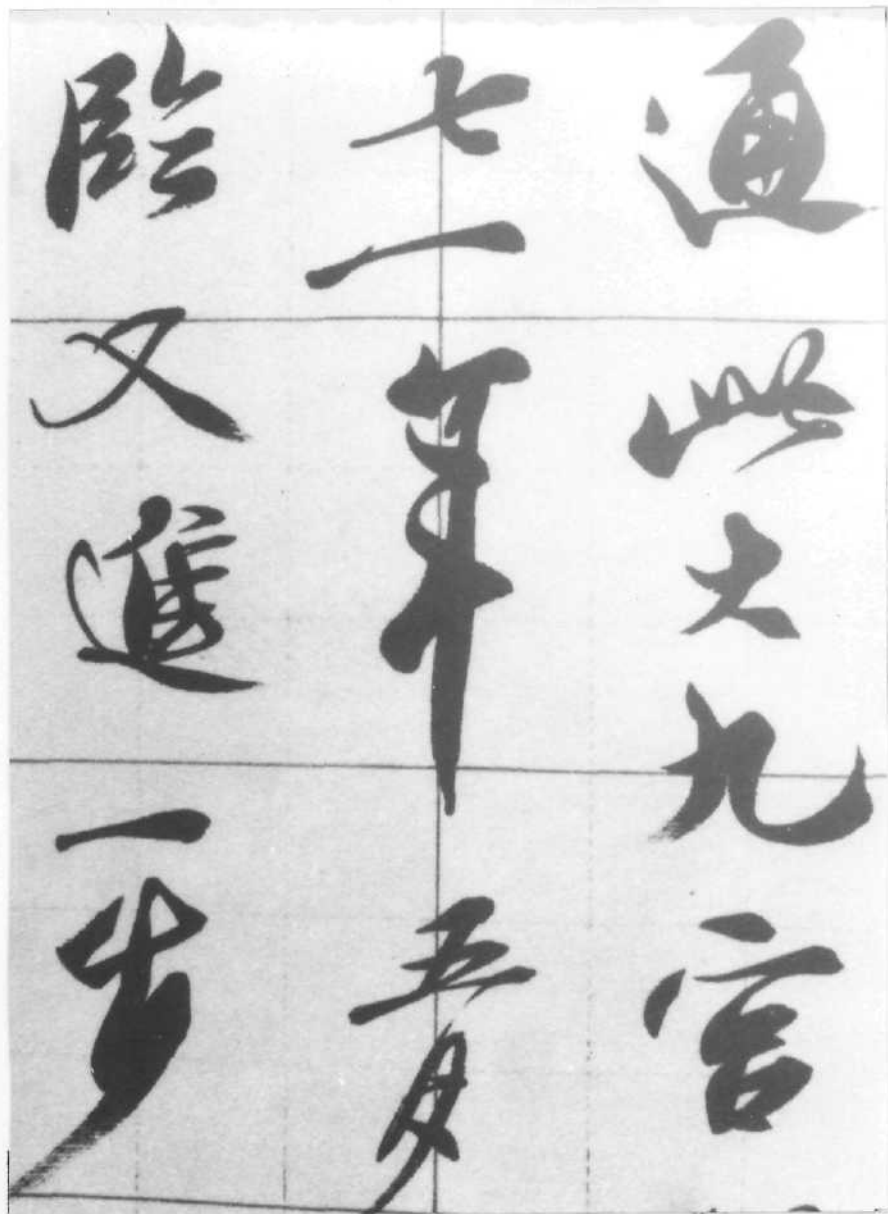 通此大九宫
七一年五月
临又進一步